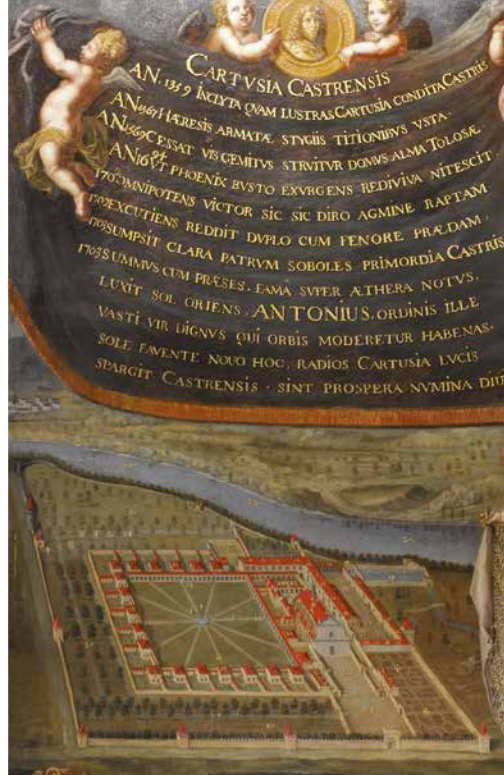 CARTVSIA CASTRENSIS
AN. 1359 INCLYTA QVAM LVSTRAS CARTVSIA CONDITA CASTRIS
AN 1567 HÆRESIS ARMATÆ STYGIIS TITIONIBVS VSTA.
AN 1569 CESSAT VIS GEMITVS STRVITVR DOMVS ALMA TOLOSÆ
AN 1674 VT PHOENIX BVSTO EXVRGENS REDIVIVA NITESCIT
1702 OMNIPOTENS VICTOR SIC SIC DIRO AGMINE RAPTAM
1702 EXCUTIENS REDDIT DVPLO CUM FENORE PRÆDAM.
1703 SUMPSIT CLARA PATRVM SOBOLES PRIMORDIA CASTRIS
1703 SUMMVS CUM PRÆSES. FAMA SVPER ÆTHERA NOTVS,
LUXIT SOL ORIENS, ANTONIUS, ORDINIS ILLE
VASTI VIR DIGNVS QVI ORBIS MODERETUR HABENAS.
SOLE FAVENTE NOVO HOC, RADIOS CARTUSIA LVCIS
SPARGIT CASTRENSIS. SINT PROSPERA NVMINA DIU